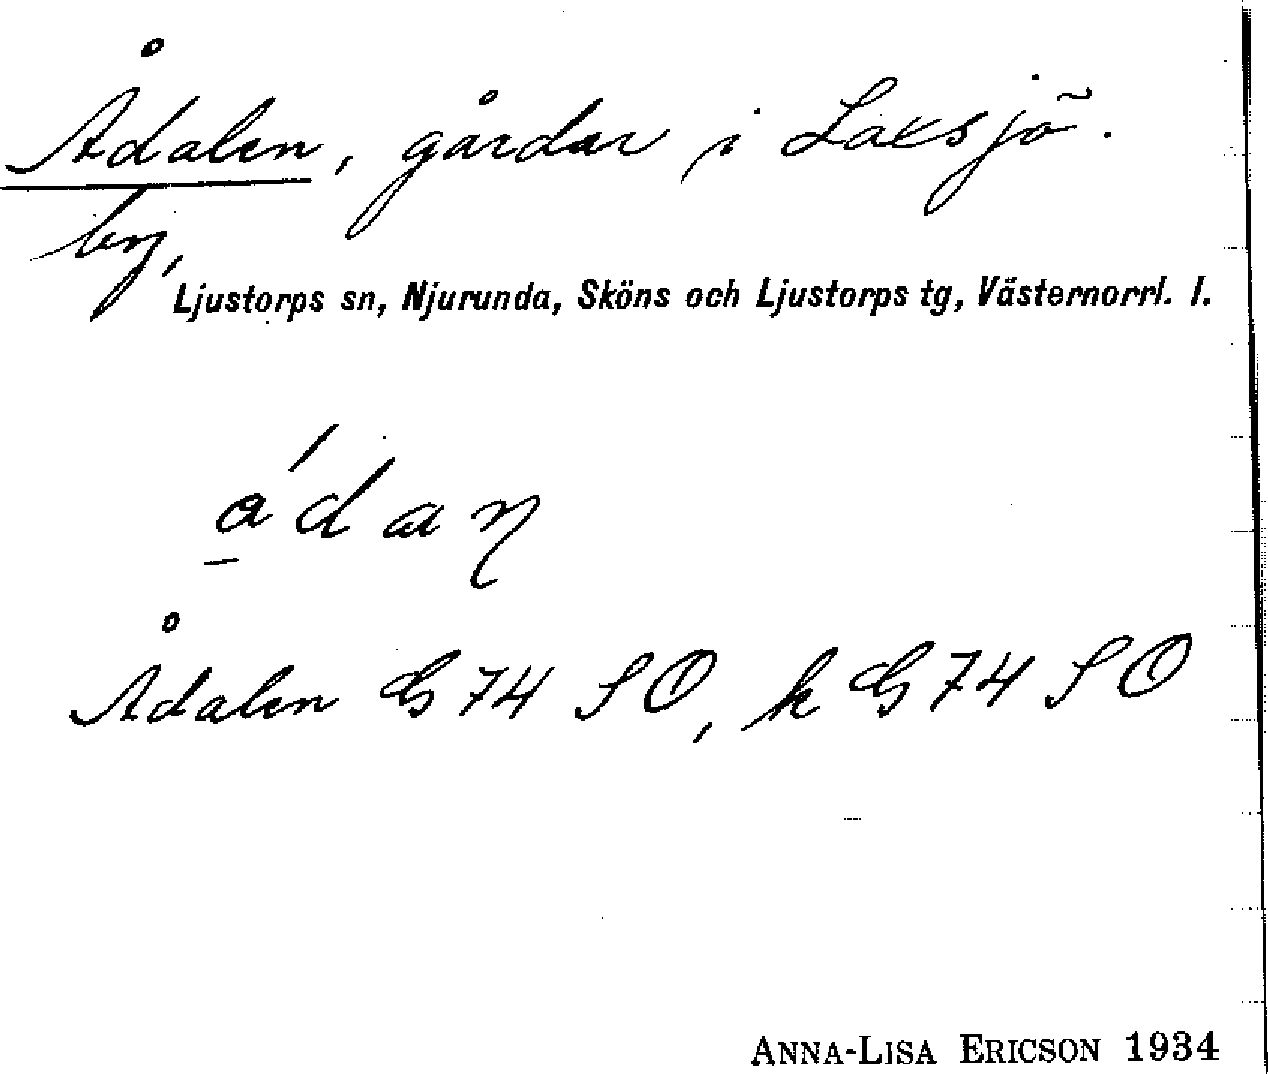 Ådalen, gårdar i Laxsjö
by,
Ljustorps sn, Njurunda, Sköns och Ljustorps tg, Västernorrl. l.
a̱´daŋ
Ådalen G 74 SO, k G 74 SO
ANNA-LISA ERICSON 1934